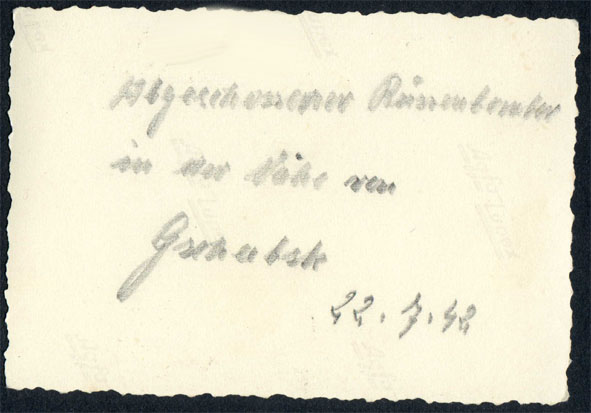 Abgeschossener Russenbomber
in der Nähe von
Gschatsk
22.7.42